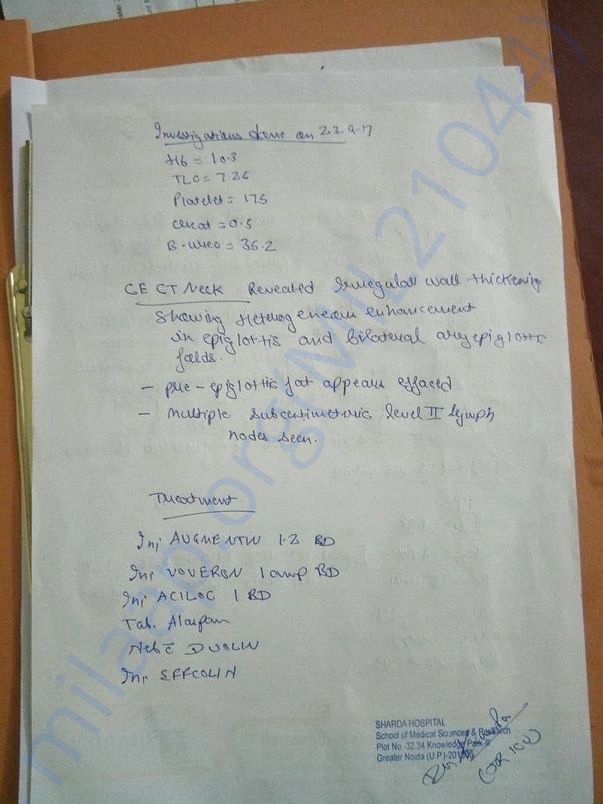 Investigations done on 2.3.9.17
Hb = 10.3
TLC = 7.26
Platelet = 175
Creat = 0.5
B. urea = 36.2
CECT Neck Revealed Irregular wall thickening
showing Heterogeneous enhancement
in epiglottis and bilateral aryepiglottic
folds.
- pre-epiglottis fat appears effaced
- multiple subcentimetric level II lymph
nodes seen.
Treatment
Inj AUGMENTIN 1.2 BD
Inj VOVERAN 1 amp BD
Inj ACILOC 1 BD
Tab. Alaspan
Neb c̄ DUOLIN
Inj EFFCOLIN
SHARDA HOSPITAL
School of Medical Sciences & Research
Plot No -32,34 Knowledge Park-
Greater Noida (U.P)-201306
milaap.org(MIL210441)